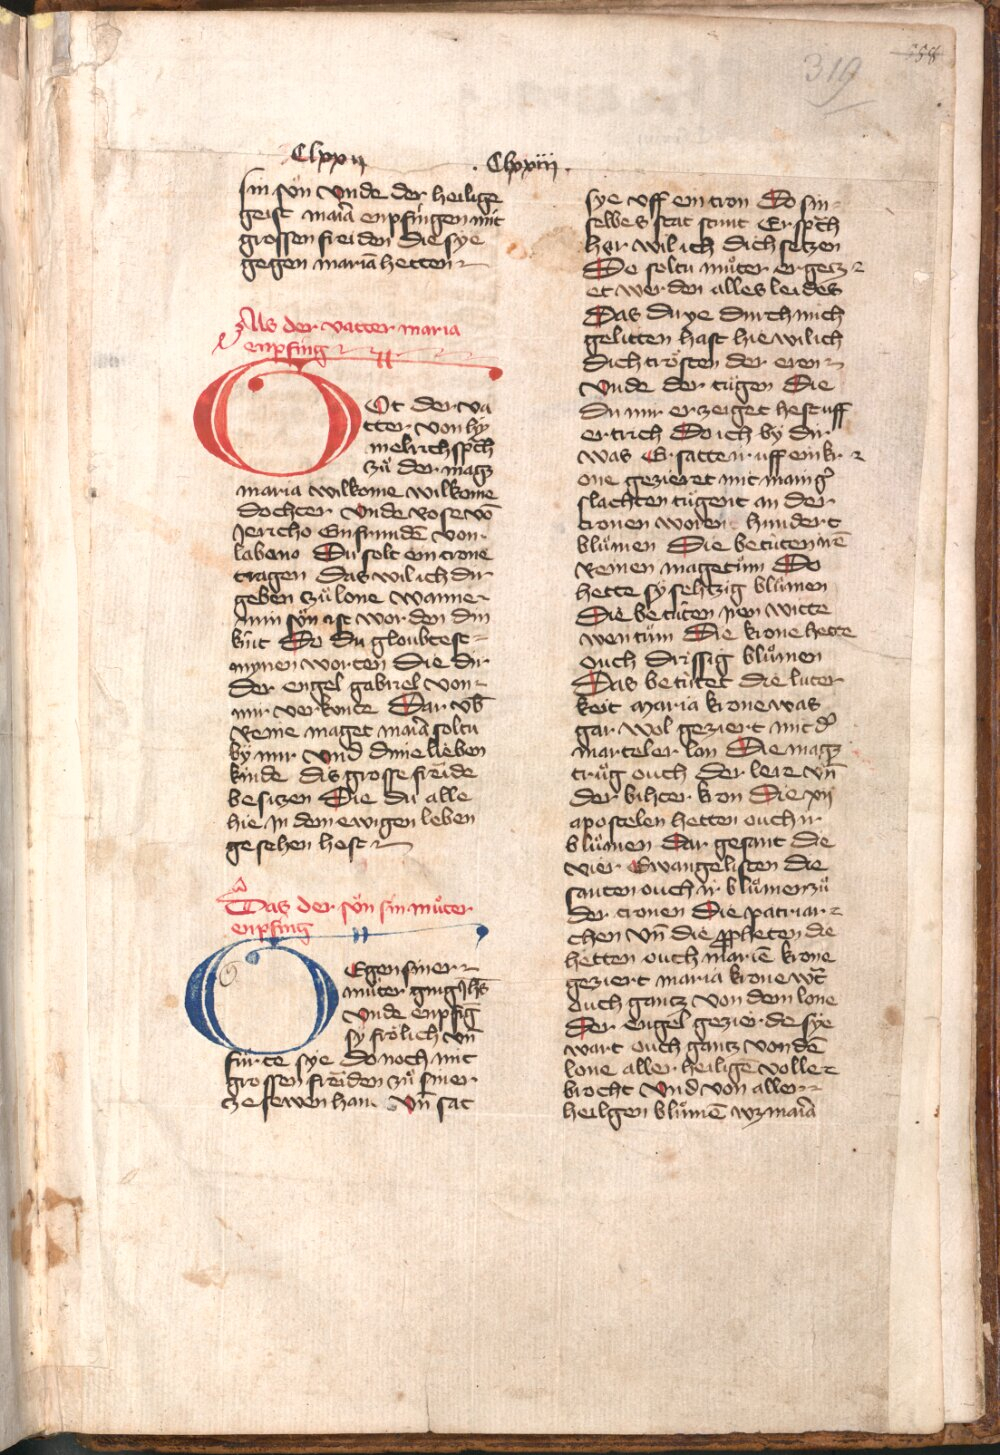 319
358
Clxxij
sin sön vnde der heilige
geist maria enpfingen mit
grossen freiden die sye
gegen mariā hetten
Als der vatter maria
enpfing
Ot der va
tter von hÿ
melrich spch
zů der magt
maria wilkome wilkome
dochter vnde rose vō
Jericho Ein frundē von
labano Du solt ein crone
tragen Das wil ich dir
geben zů lone wanne
min sön ist worden din
kint Do du gloubtest
mynen worten Die dir
der engel gabriel von
mir verkunte Dar vb
Reine maget maria soltu
by mir vnd dinē lieben
kinde dis grosse freide
besizen Die du alle
hie in dem ewigen leben
gesehen hest
Das der sön sin můter
enpfing
Egen siner
můter ging ihs
vnde enpfīg
sy frölich vn̄
fürte sye do noch mit
grossen freiden zů siner
zesewen han Vn̄ sat
Clxxiij
sye vff ein tron Do sin
selbes stat stunt Er spch
har wil ich dich setzen
Do soltu můter ergetz
et werden alles leides
Das du ye durch mich
gelitten hast hie wil ich
dich trösten der eren
vnde der tügen Die
du mir erzeiget hest vff
ertrich Do ich by dir
was Er satte ir vff ein kr
one gezieret mit manig
slachten tügent an der
cronen woren hundert
blůmen Die betüten irē
reinen magetům Do
hette sy sehtzig blůmen
Die betüten iren witte
wentům Die krone hette
ouch drissig blůmen
Das betütet die luter
keit maria krone was
gar wol geziert mit d
marteler lon Die magt
trůg ouch der lere vn̄
der bihter kron Die xij
apostelen hetten ouch ir
blůmen dar gesant die
vier Ewangelisten die
santen ouch ir blůmen zů
der cronen Die patriar
chen vn̄ die ppheten die
hetten ouch mariē krone
geziert maria krone wt
ouch gantz von dem lone
Der engel gezierde sye
wart ouch gantz von dē
lone aller heiligē volle
brocht vnd von allen
heilgen blůmē wz maria